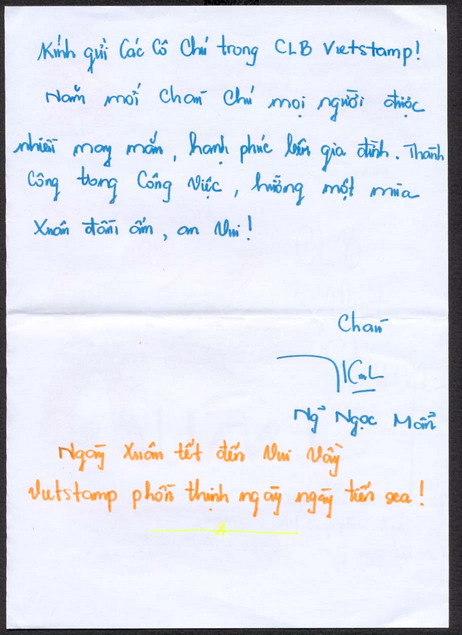 Kính gửi Các Cô Chú trong CLB Vietstamp!
Năm mới Cháu Chú mọi người được
nhiều may mắn, hạnh phúc bên gia đình. Thành
Công trong Công việc, hưởng một mùa
Xuân đầm ấm, an vui!
Cháu
Ng Ngọc Mẩn
Ngày Xuân tết đến Vui Vầy
Vietstamp phồn thịnh ngày ngày tiến xa!